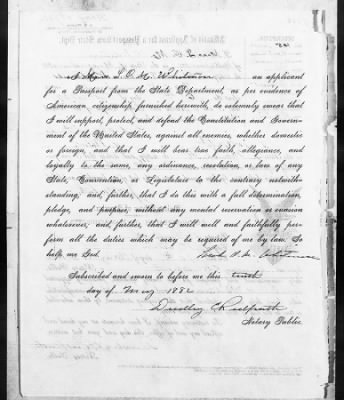 L. O. M. an applicant
for a Passport from the State Department, as per evidence of
American citizenship furnished herewith, do solemnly swear that
I will support, protect, and defend the Constitution and Govern-
ment of the United States, against all enemies, whether domestic
or foreign, and that I will bear true faith, allegiance, and
loyalty to the same, any ordinance, resolution, or law of any
State, Convention, or Legislature to the contrary notwith-
standing, and, further, that I do this with a full determination,
pledge, and purpose, without any mental reservation or evasion
whatsoever; and, further, that I will well and faithfully per-
form all the duties which may be required of me by law. So
help me God.
Subscribed and sworn to before me this tenth
day of May 1882
Dudley C.
Notary Public